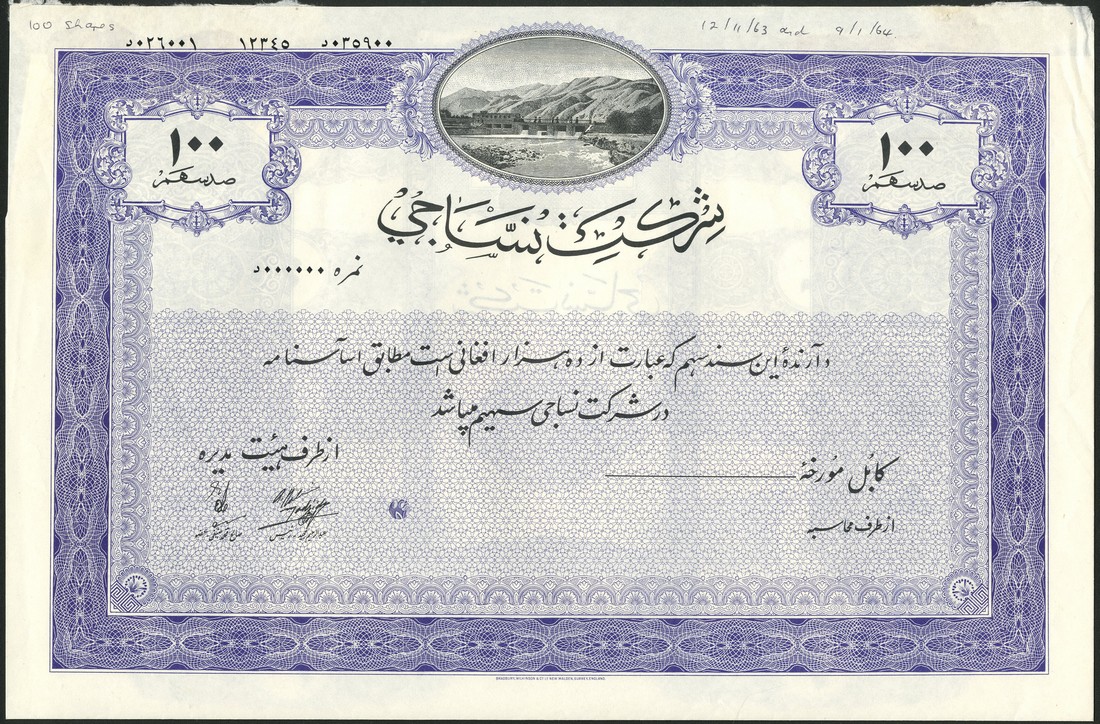 100 shares
12/11/63 and 9/1/64.
د۰۲٦۰۰۱ ۱۲۳٤٥ د۰۳٥۹۰۰
۱۰۰
صد سهم
۱۰۰
صد سهم
شرکت نساجي
نمره د۰۰۰۰۰۰
دارندهٔ این سند سهم که عبارت از ده هزار افغانی است مطابق اساسنامه
در شرکت نساجی سهیم میباشد
از طرف هیئت مدیره
کابل مورخهٔ
از طرف محاسبه
BRADBURY, WILKINSON & Cº Lᵈ NEW MALDEN, SURREY, ENGLAND.